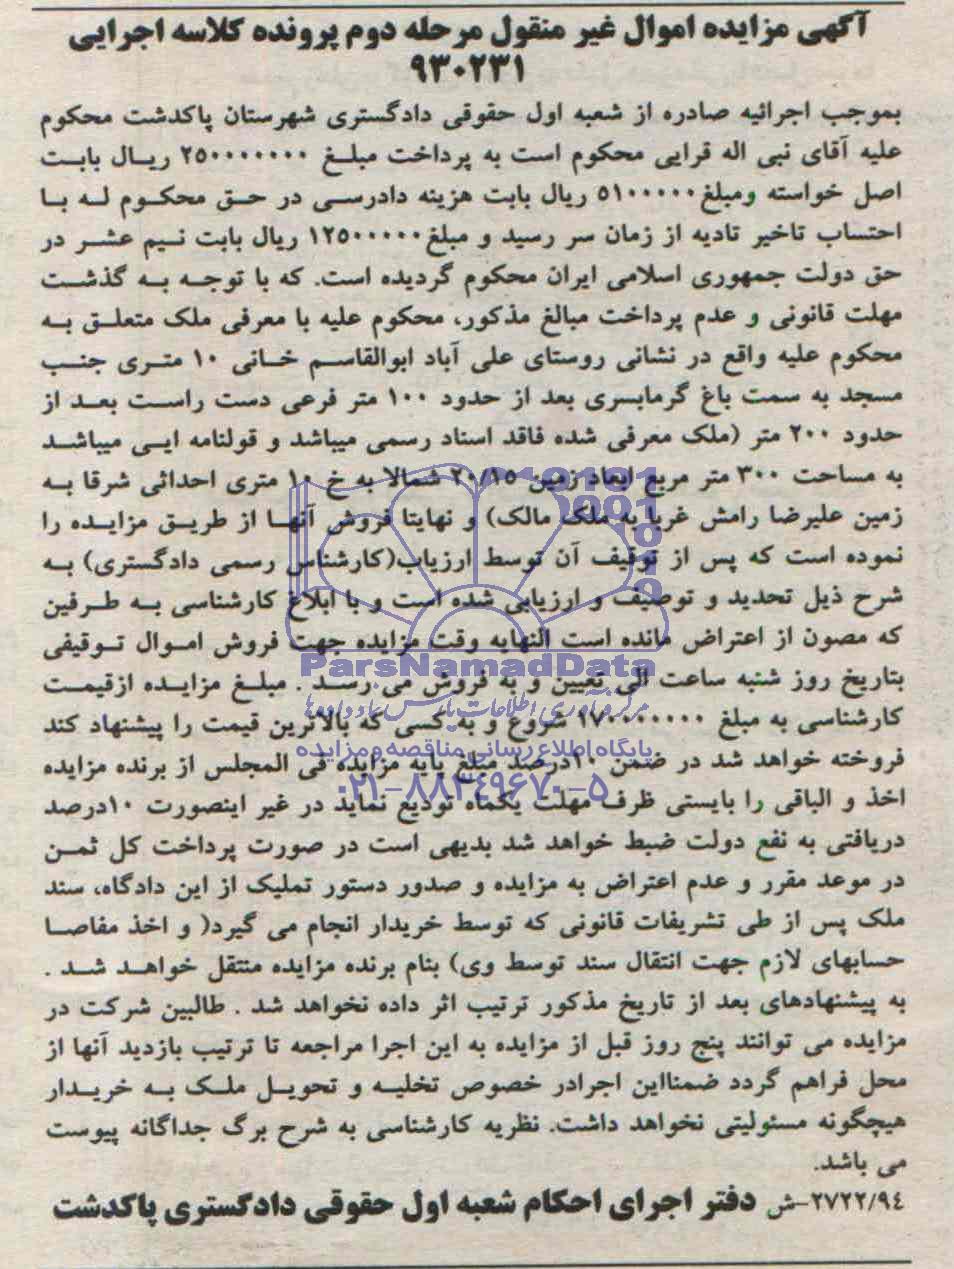 آگهی مزایده اموال غیر منقول مرحله دوم پرونده کلاسه اجرایی
۹۳۰۲۳۱
بموجب اجرائیه صادره از شعبه اول حقوقی دادگستری شهرستان پاکدشت محکوم
علیه آقای نبی اله قرایی محکوم است به پرداخت مبلغ ۲۵۰۰۰۰۰۰۰ ریال بابت
اصل خواسته ومبلغ ۵۱۰۰۰۰۰ ریال بابت هزینه دادرسی در حق محکوم له با
احتساب تاخیر تادیه از زمان سر رسید و مبلغ ۱۲۵۰۰۰۰۰ ریال بابت نیم عشر در
حق دولت جمهوری اسلامی ایران محکوم گردیده است. که با توجه به گذشت
مهلت قانونی و عدم پرداخت مبالغ مذکور، محکوم علیه با معرفی ملک متعلق به
محکوم علیه واقع در نشانی روستای علی آباد ابوالقاسم خانی ۱۰ متری جنب
مسجد به سمت باغ گرمابسری بعد از حدود ۱۰۰ متر فرعی دست راست بعد از
حدود ۲۰۰ متر (ملک معرفی شده فاقد اسناد رسمی میباشد و قولنامه ایی میباشد
به مساحت ۳۰۰ متر مربع ابعاد زمین ۲۰/۱۵ شمالا به خ ۱۰ متری احداثی شرقا به
زمین علیرضا رامش غربا به ملک مالک) و نهایتا فروش آنها از طریق مزایده را
نموده است که پس از توقیف آن توسط ارزیاب(کارشناس رسمی دادگستری) به
شرح ذیل تحدید و توصیف و ارزیابی شده است و با ابلاغ کارشناسی به طرفین
که مصون از اعتراض مانده است النهایه وقت مزایده جهت فروش اموال توقیفی
بتاریخ روز شنبه ساعت الی تعیین و به فروش می رسد . مبلغ مزایده ازقیمت
کارشناسی به مبلغ ۱۷۰۰۰۰۰۰۰ شروع و به کسی که بالاترین قیمت را پیشنهاد کند
فروخته خواهد شد در ضمن ۱۰درصد مبلغ پایه مزایده فی المجلس از برنده مزایده
اخذ و الباقی را بایستی ظرف مهلت یکماه تودیع نماید در غیر اینصورت ۱۰درصد
دریافتی به نفع دولت ضبط خواهد شد بدیهی است در صورت پرداخت کل ثمن
در موعد مقرر و عدم اعتراض به مزایده و صدور دستور تملیک از این دادگاه، سند
ملک پس از طی تشریفات قانونی که توسط خریدار انجام می گیرد( و اخذ مفاصا
حسابهای لازم جهت انتقال سند توسط وی) بنام برنده مزایده منتقل خواهد شد .
به پیشنهادهای بعد از تاریخ مذکور ترتیب اثر داده نخواهد شد . طالبین شرکت در
مزایده می توانند پنج روز قبل از مزایده به این اجرا مراجعه تا ترتیب بازدید آنها از
محل فراهم گردد ضمنااین اجرادر خصوص تخلیه و تحویل ملک به خریدار
هیچگونه مسئولیتی نخواهد داشت. نظریه کارشناسی به شرح برگ جداگانه پیوست
می باشد.
۲۷۲۲/۹۴-ش دفتر اجرای احکام شعبه اول حقوقی دادگستری پاکدشت
ParsNamadData
مرکز فرآوری اطلاعات پارس نماد داده ها
پایگاه اطلاع رسانی مناقصه و مزایده
۰۲۱-۸۸۳۴۹۶۷۰-۵